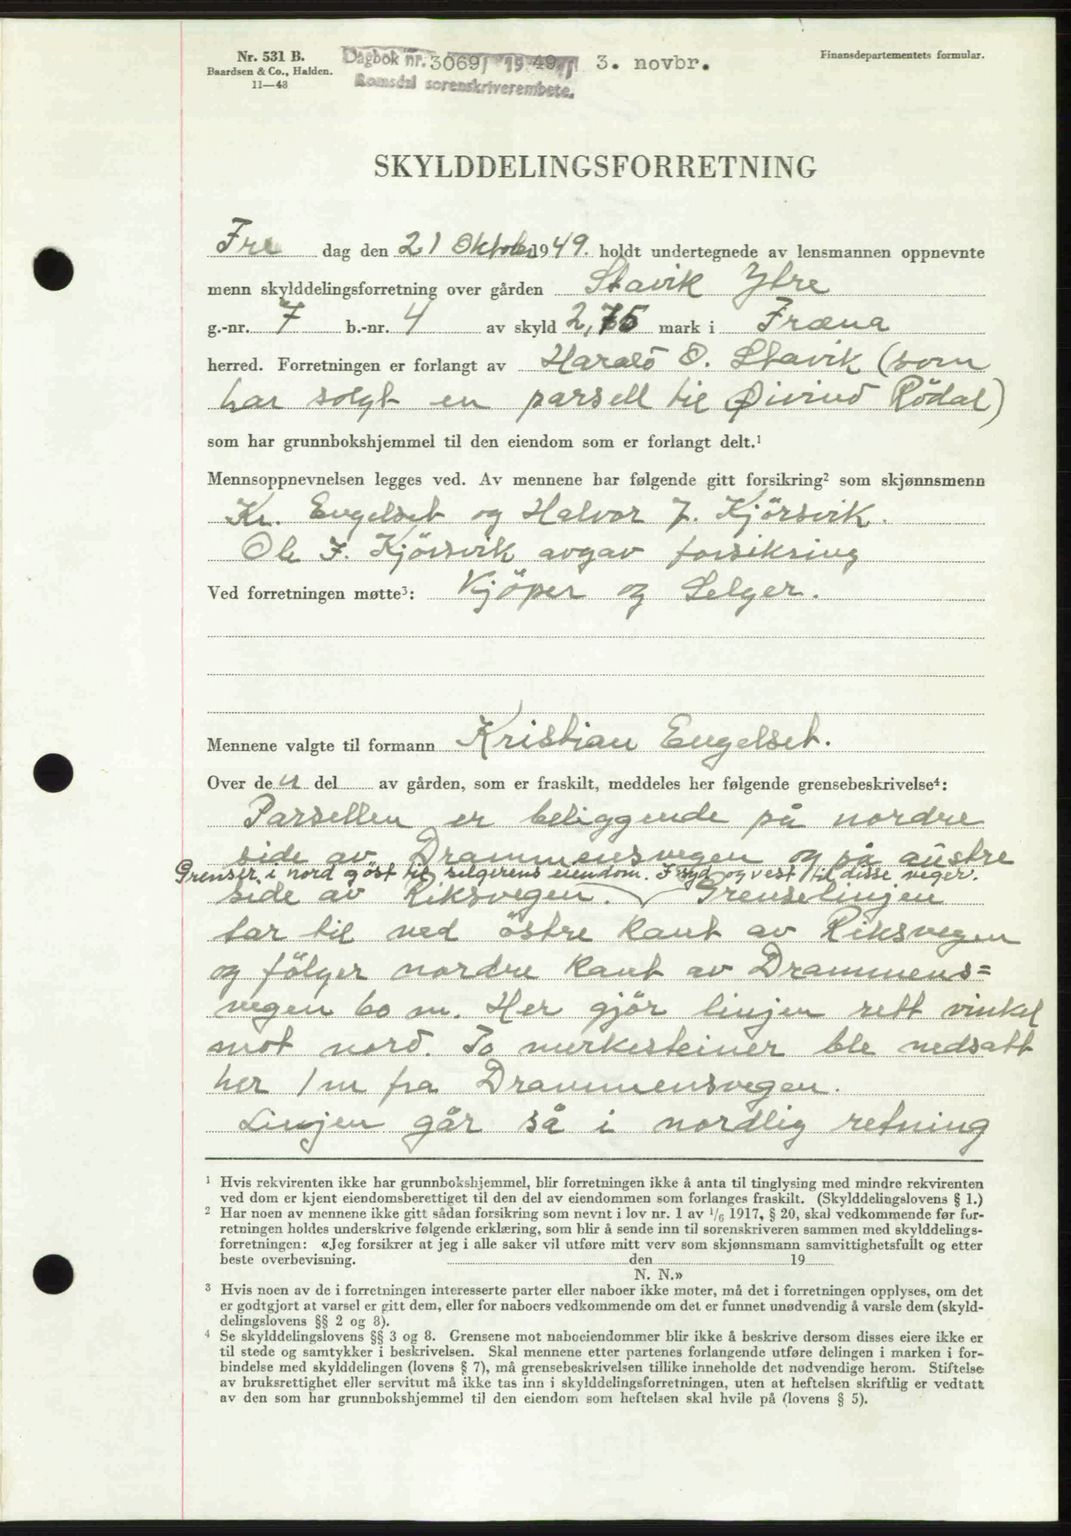 Nr. 531 B.
Baardsen & Co., Halden.
11—48
Dagbok nr. 3069 1949 3. novbr.
Romsdal sorenskriverembete.
Finansdepartementets formular.
SKYLDDELINGSFORRETNING
Fre dag den 21 Oktober 1949. holdt undertegnede av lensmannen oppnevnte
menn skylddelingsforretning over gården Stavik Ytre
g.-nr. 7 b.-nr. 4 av skyld 2,75 mark i Fræna
herred. Forretningen er forlangt av Harald O. Stavik (som
har solgt en parsell til Øivind Rödal)
som har grunnbokshjemmel til den eiendom som er forlangt delt.¹
Mennsoppnevnelsen legges ved. Av mennene har følgende gitt forsikring² som skjønnsmenn
Kr. Engelset og Halvor J. Kjörsvik.
Ole J. Kjörsvik avgav forsikring
Ved forretningen møtte³: Kjöper og Selger.
Mennene valgte til formann Kristian Engelset.
Over den del av gården, som er fraskilt, meddeles her følgende grensebeskrivelse⁴:
Parsellen er beliggende på nordre
side av Drammensvegen og på austre
Grenser i nord og öst til selgerens eiendom. I syd og vest til disse veger.
side av Riksvegen. Grenselinjen
tar til ved östre kant av Riksvegen
og fölger nordre kant av Drammens=
vegen 60 m. Her gjör linjen rett vinkel
mot nord. To merkesteiner ble nedsatt
her 1 m fra Drammensvegen.
Linjen går så i nordlig retning
¹ Hvis rekvirenten ikke har grunnbokshjemmel, blir forretningen ikke å anta til tinglysing med mindre rekvirenten
ved dom er kjent eiendomsberettiget til den del av eiendommen som forlanges fraskilt. (Skylddelingslovens § 1.)
² Har noen av mennene ikke gitt sådan forsikring som nevnt i lov nr. 1 av ¹/₆ 1917, § 20, skal vedkommende før for-
retningen holdes underskrive følgende erklæring, som blir å sende inn til sorenskriveren sammen med skylddelings-
forretningen: «Jeg forsikrer at jeg i alle saker vil utføre mitt verv som skjønnsmann samvittighetsfullt og etter
beste overbevisning. den 19
N. N.»
³ Hvis noen av de i forretningen interesserte parter eller naboer ikke møter, må det i forretningen opplyses, om det
er godtgjort at varsel er gitt dem, eller for naboers vedkommende om det er funnet unødvendig å varsle dem (skyld-
delingslovens §§ 2 og 3).
⁴ Se skylddelingslovens §§ 3 og 8. Grensene mot naboeiendommer blir ikke å beskrive dersom disses eiere ikke er
til stede og samtykker i beskrivelsen. Skal mennene etter partenes forlangende utføre delingen i marken i for-
bindelse med skylddelingen (lovens § 7), må grensebeskrivelsen tillike inneholde det nødvendige herom. Stiftelse
av bruksrettighet eller servitut må ikke tas inn i skylddelingsforretningen, uten at heftelsen skriftlig er vedtatt
av den som har grunnbokshjemmel til den eiendom som heftelsen skal hvile på (lovens § 5).